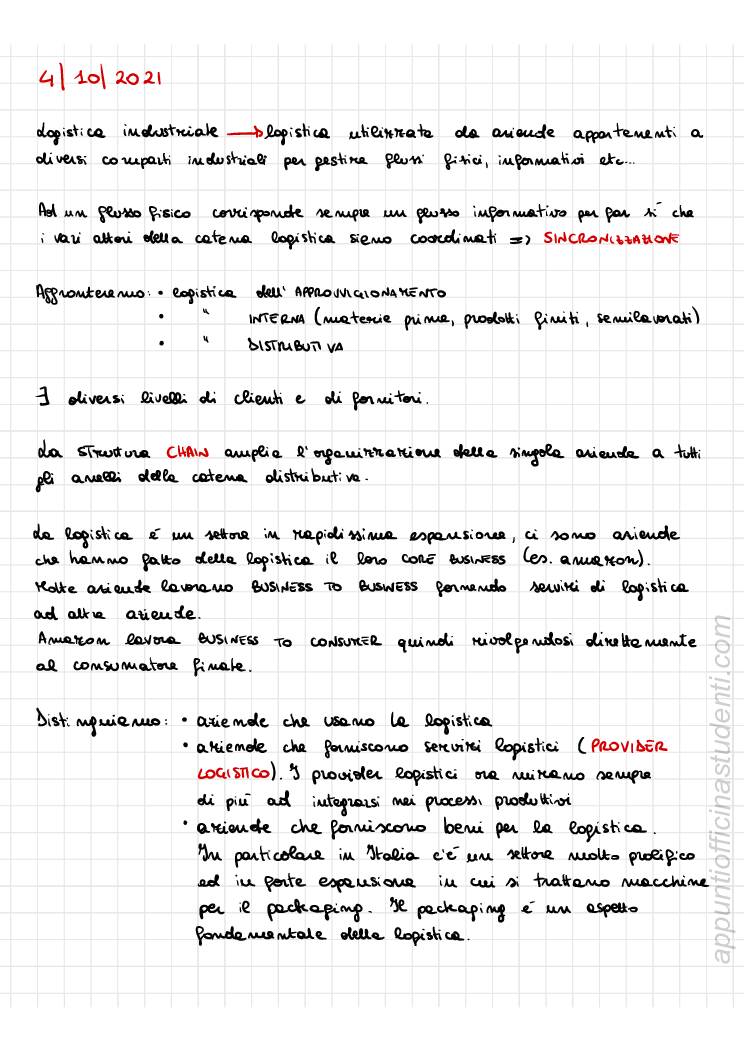 4/10/2021
Logistica industriale → logistica utilizzata da aziende appartenenti a
diversi comparti industriali per gestire flussi fisici, informativi etc...
Ad un flusso fisico corrisponde sempre un flusso informativo per far sì che
i vari attori della catena logistica siano coordinati => SINCRONIZZAZIONE
Affronteremo: • logistica dell' APPROVVIGIONAMENTO
• " INTERNA (materie prime, prodotti finiti, semilavorati)
• " DISTRIBUTIVA
∃ diversi livelli di clienti e di fornitori.
La struttura CHAIN amplia l'organizzazione della singola azienda a tutti
gli anelli della catena distributiva.
La logistica è un settore in rapidissima espansione, ci sono aziende
che hanno fatto della logistica il loro CORE BUSINESS (es. amazon).
Molte aziende lavorano BUSINESS TO BUSINESS fornendo servizi di logistica
ad altre aziende.
Amazon lavora BUSINESS TO CONSUMER quindi rivolgendosi direttamente
al consumatore finale.
Distinguiamo: • aziende che usano la logistica
• aziende che forniscono servizi logistici (PROVIDER
LOGISTICO). I provider logistici ora mirano sempre
di più ad integrarsi nei processi produttivi
• aziende che forniscono beni per la logistica.
In particolare in Italia c'è un settore molto prolifico
ed in forte espansione in cui si trattano macchine
per il packaging. Il packaging è un aspetto
fondamentale della logistica.
appuntiofficinastudenti.com